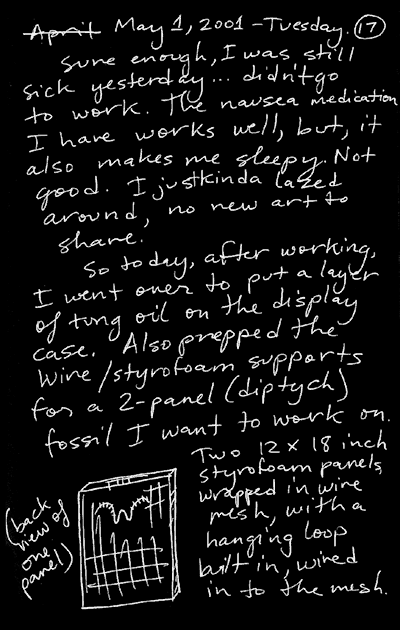 April May 1, 2001 - Tuesday. 17
Sure enough, I was still
sick yesterday... didn't go
to work. The nausea medication
I have works well, but, it
also makes me sleepy. Not
good. I just kinda lazed
around, no new art to
share.
So today, after working,
I went over to put a layer
of tung oil on the display
case. Also prepped the
wire/styrofoam supports
for a 2-panel (diptych)
fossil I want to work on.
Two 12 x 18 inch
styrofoam panels,
wrapped in wire
mesh, with a
hanging loop
built in, wired
in to the mesh.
(back
view of
one
panel)